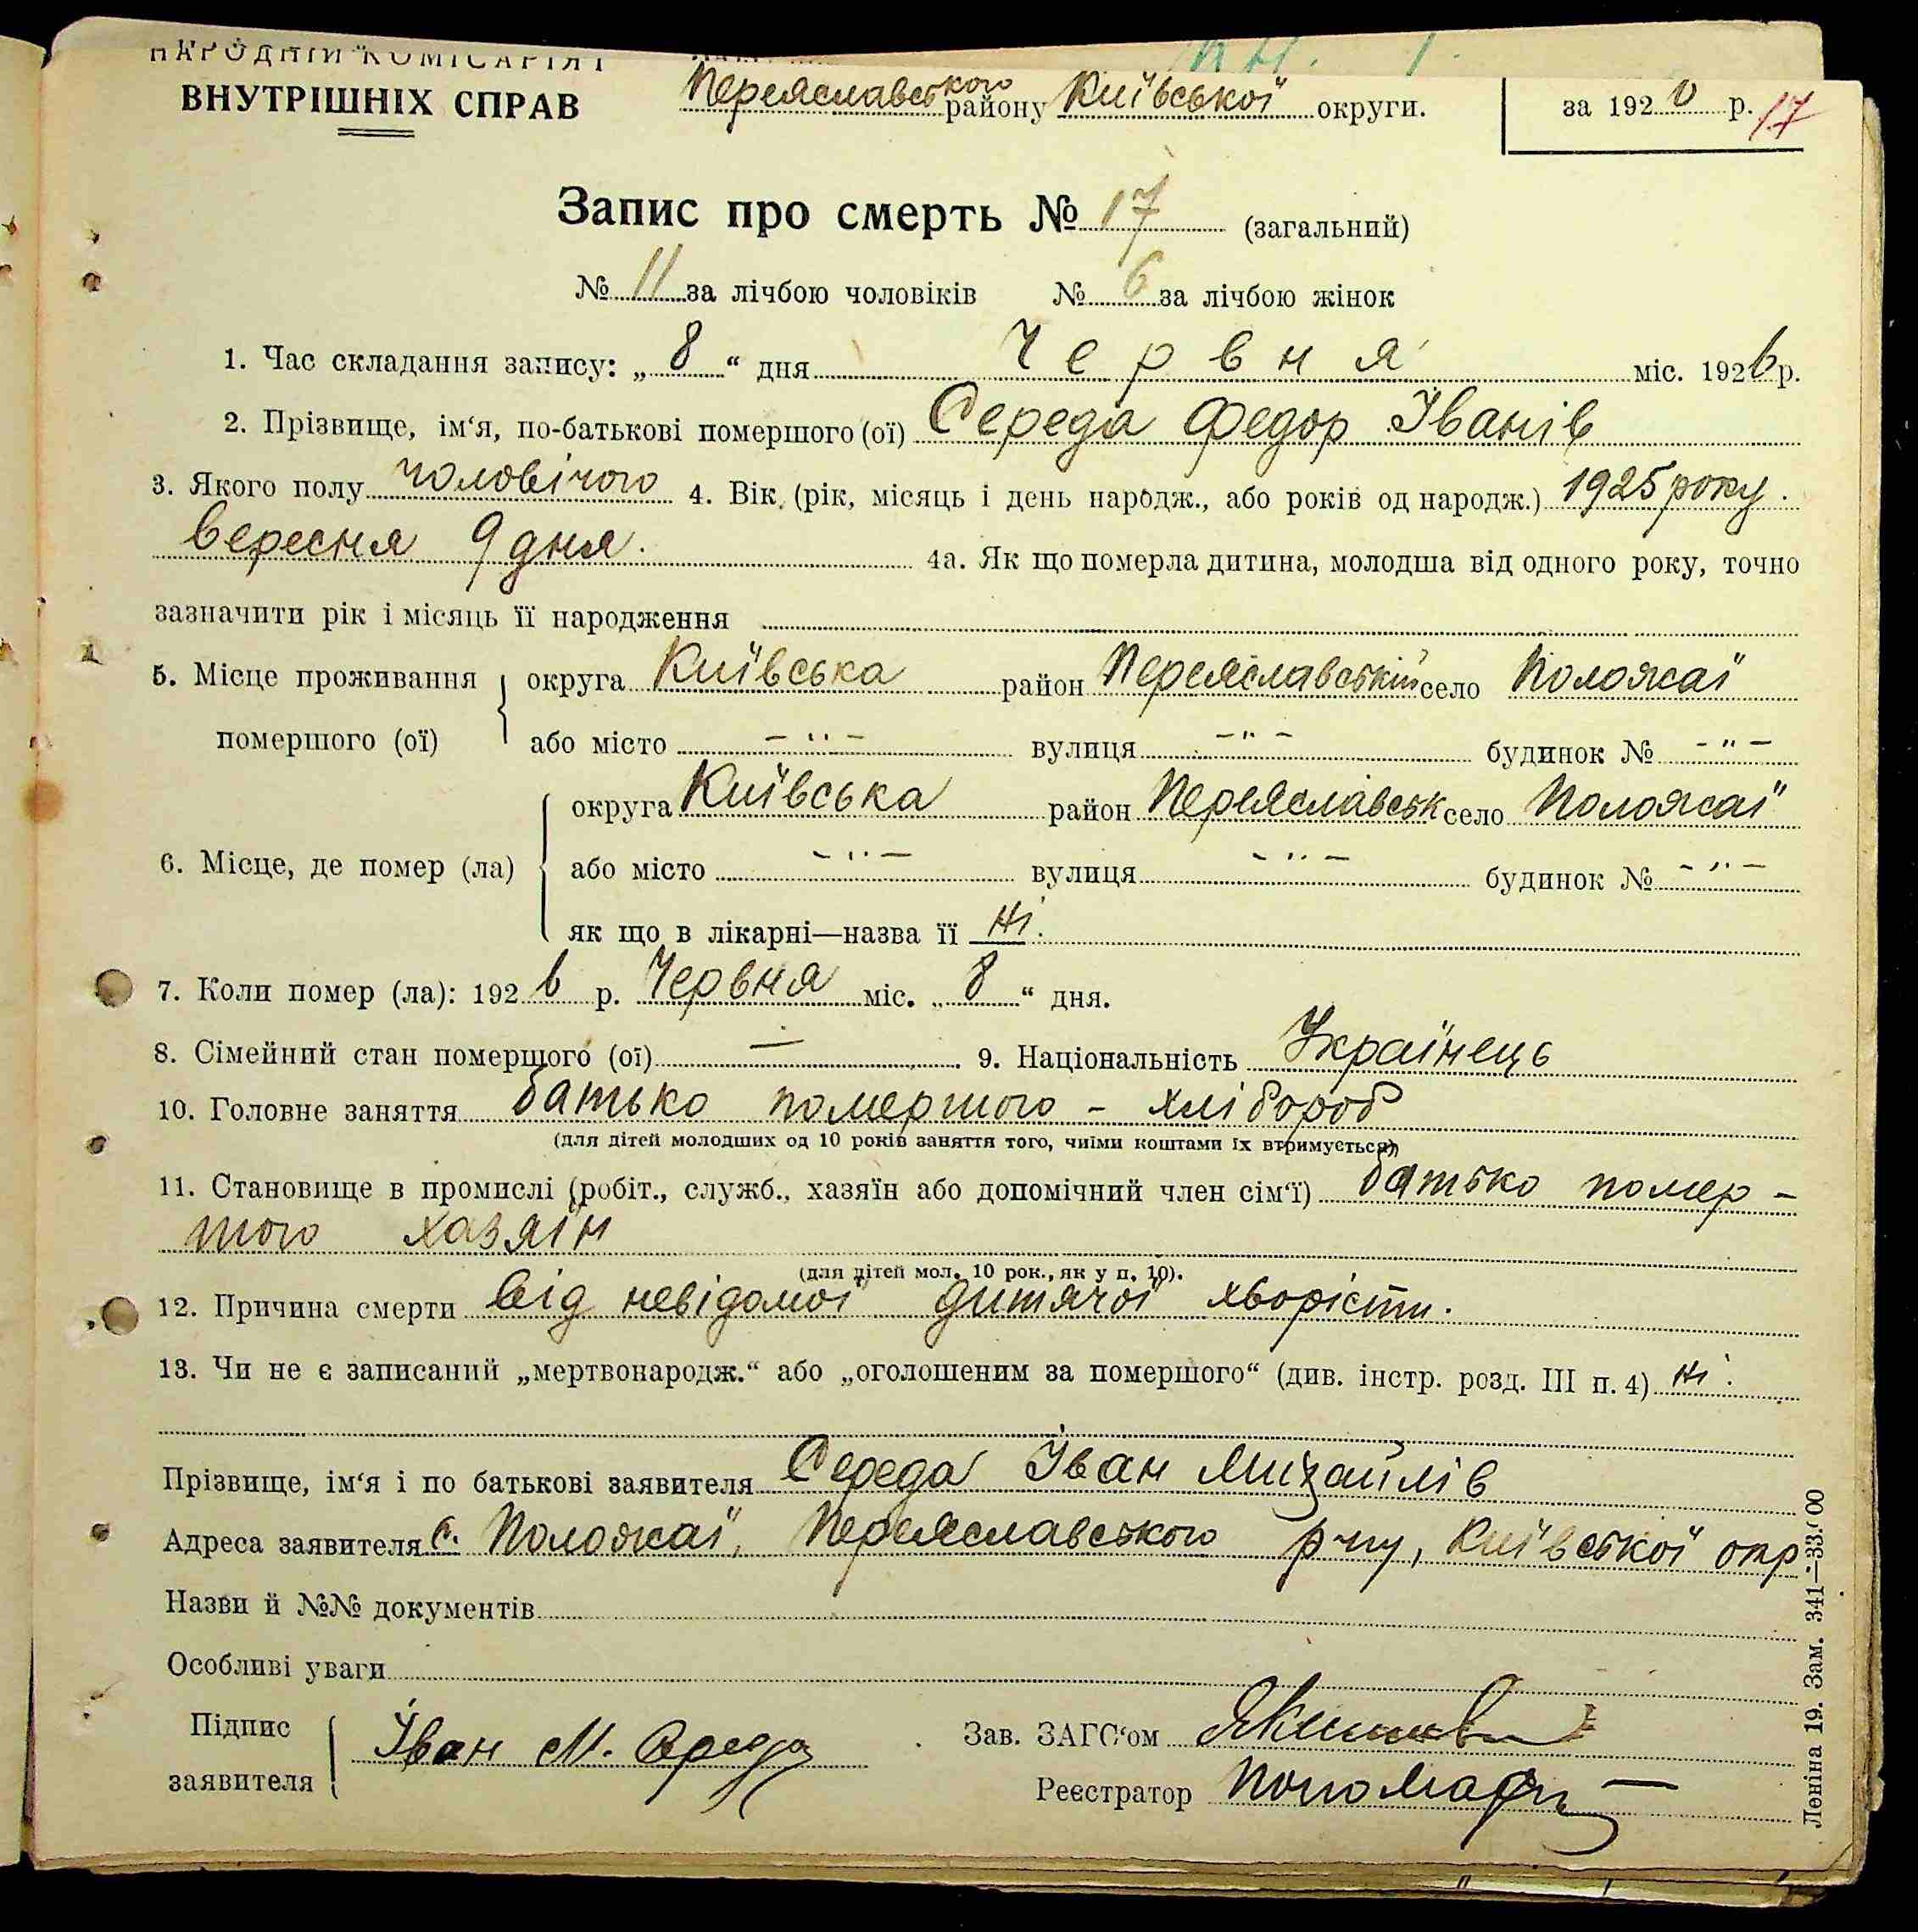 НАРОДНІЙ КОМІСАРІЯТ
ВНУТРІШНІХ СПРАВ
Переяславського району Київської округи.
за 1926 р. 17
Запис про смерть № 17 (загальний)
№ 11 за лічбою чоловіків № 6 за лічбою жінок
1. Час складання запису: „ 8 “ дня Червня міс. 1926 р.
2. Прізвище, ім‘я, по-батькові помершого (ої) Середа Федор Іванів
3. Якого полу чоловічого 4. Вік (рік, місяць і день народж., або років од народж.) 1925 року.
вересня 9 дня. 4а. Як що померла дитина, молодша від одного року, точно
зазначити рік і місяць її народження
5. Місце проживання округа Київська район Переяславський село Положаї
помершого (ої) або місто – „ – вулиця – „ – будинок № – „ –
округа Київська район Переяславськ село Положаї
6. Місце, де помер (ла) або місто – „ – вулиця – „ – будинок № – „ –
як що в лікарні—назва її Ні.
7. Коли помер (ла): 1926 р. Червня міс. „ 8 “ дня.
8. Сімейний стан помершого (ої) — 9. Національність Українець
10. Головне заняття батько помершого – хлібороб
(для дітей молодших од 10 років заняття того, чиїми коштами їх втримується)
11. Становище в промислі (робіт., служб., хазяїн або допомічний член сім‘ї) батько помер-
шого хазяїн
(для дітей мол. 10 рок., як у п. 10).
12. Причина смерти від невідомої дитячої хворісти.
13. Чи не є записаний „мертвонародж.“ або „оголошеним за помершого“ (див. інстр. розд. III п. 4) Ні.
Прізвище, ім‘я і по батькові заявителя Середа Іван Михайлів
Адреса заявителя с. Положаї, Переяславського р-ну, Київської окр
Назви й №№ документів
Особливі уваги
Підпис заявителя Іван М. Середа
Зав. ЗАГС‘ом
Реєстратор
Леніна 19. Зам. 341—33.